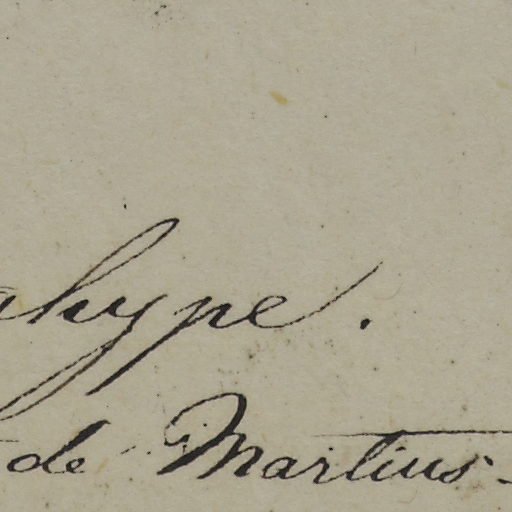 ahype.
de Martius-